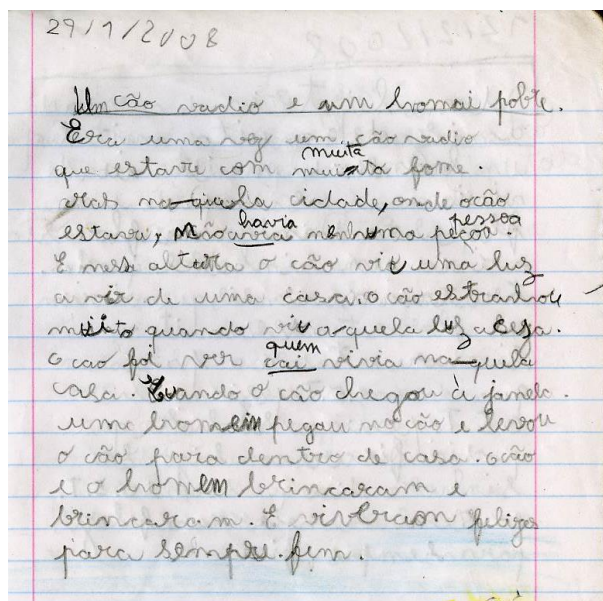 29/1/2008
Um cão vadio e um homai pobre.
Era uma vez um cão vadio
muita
que estava com muita fome.
Mas na quela cidade, onde o cão
havia pessoa
estava, não avia nenhuma peçoa.
E nesa altura o cão viu uma luz
a vir de uma casa, o cão estranhou
muito quando viu aquela luz acesa.
quem
O cao foi ver cai vivia na quela
casa. Quando o cão chegou à janela.
uma homem pegau no cão e levou
o cão para dentro de casa. o cão
e o homem brincaram e
brincaram. E viveram felizes
para sempre. fim.